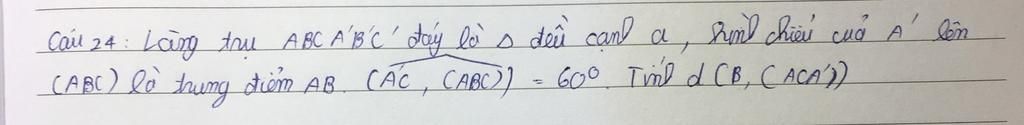 Câu 24: Lăng trụ ABC A'B'C' đáy là Δ đều cạnh a, hình chiếu của A' lên
(ABC) là trung điểm AB. (A'C, (ABC)) = 60°. Tính d (B, (ACA'))